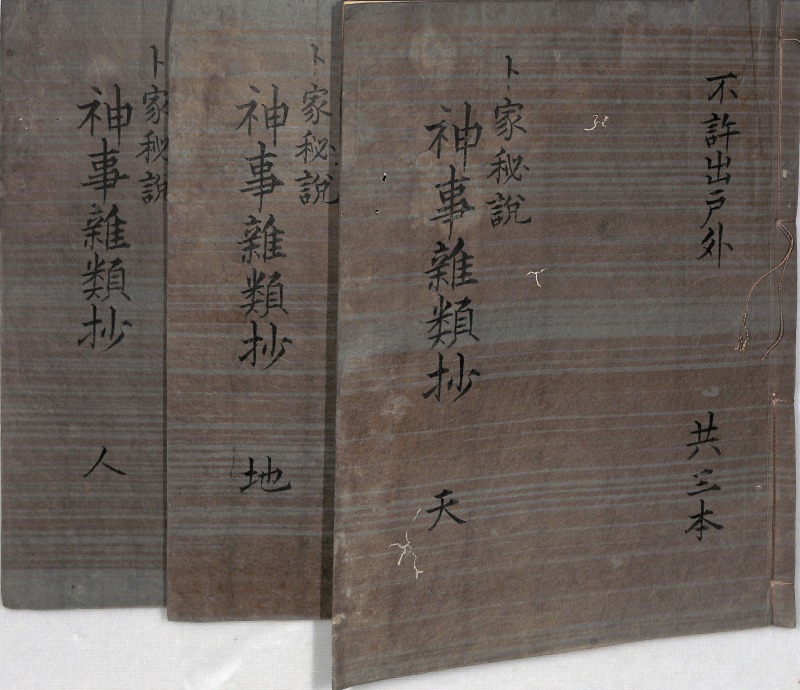 不許出戸外
共三本
卜家秘説
神事雜類抄
天
卜家秘説
神事雜類抄
地
卜家秘説
神事雜類抄
人